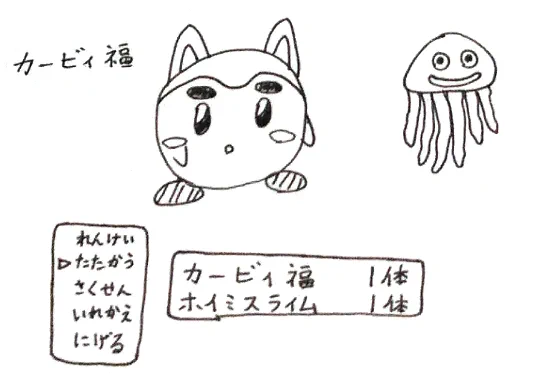 カービィ福
れんけい
▷たたかう
さくせん
いれかえ
にげる
カービィ福 1体
ホイミスライム 1体